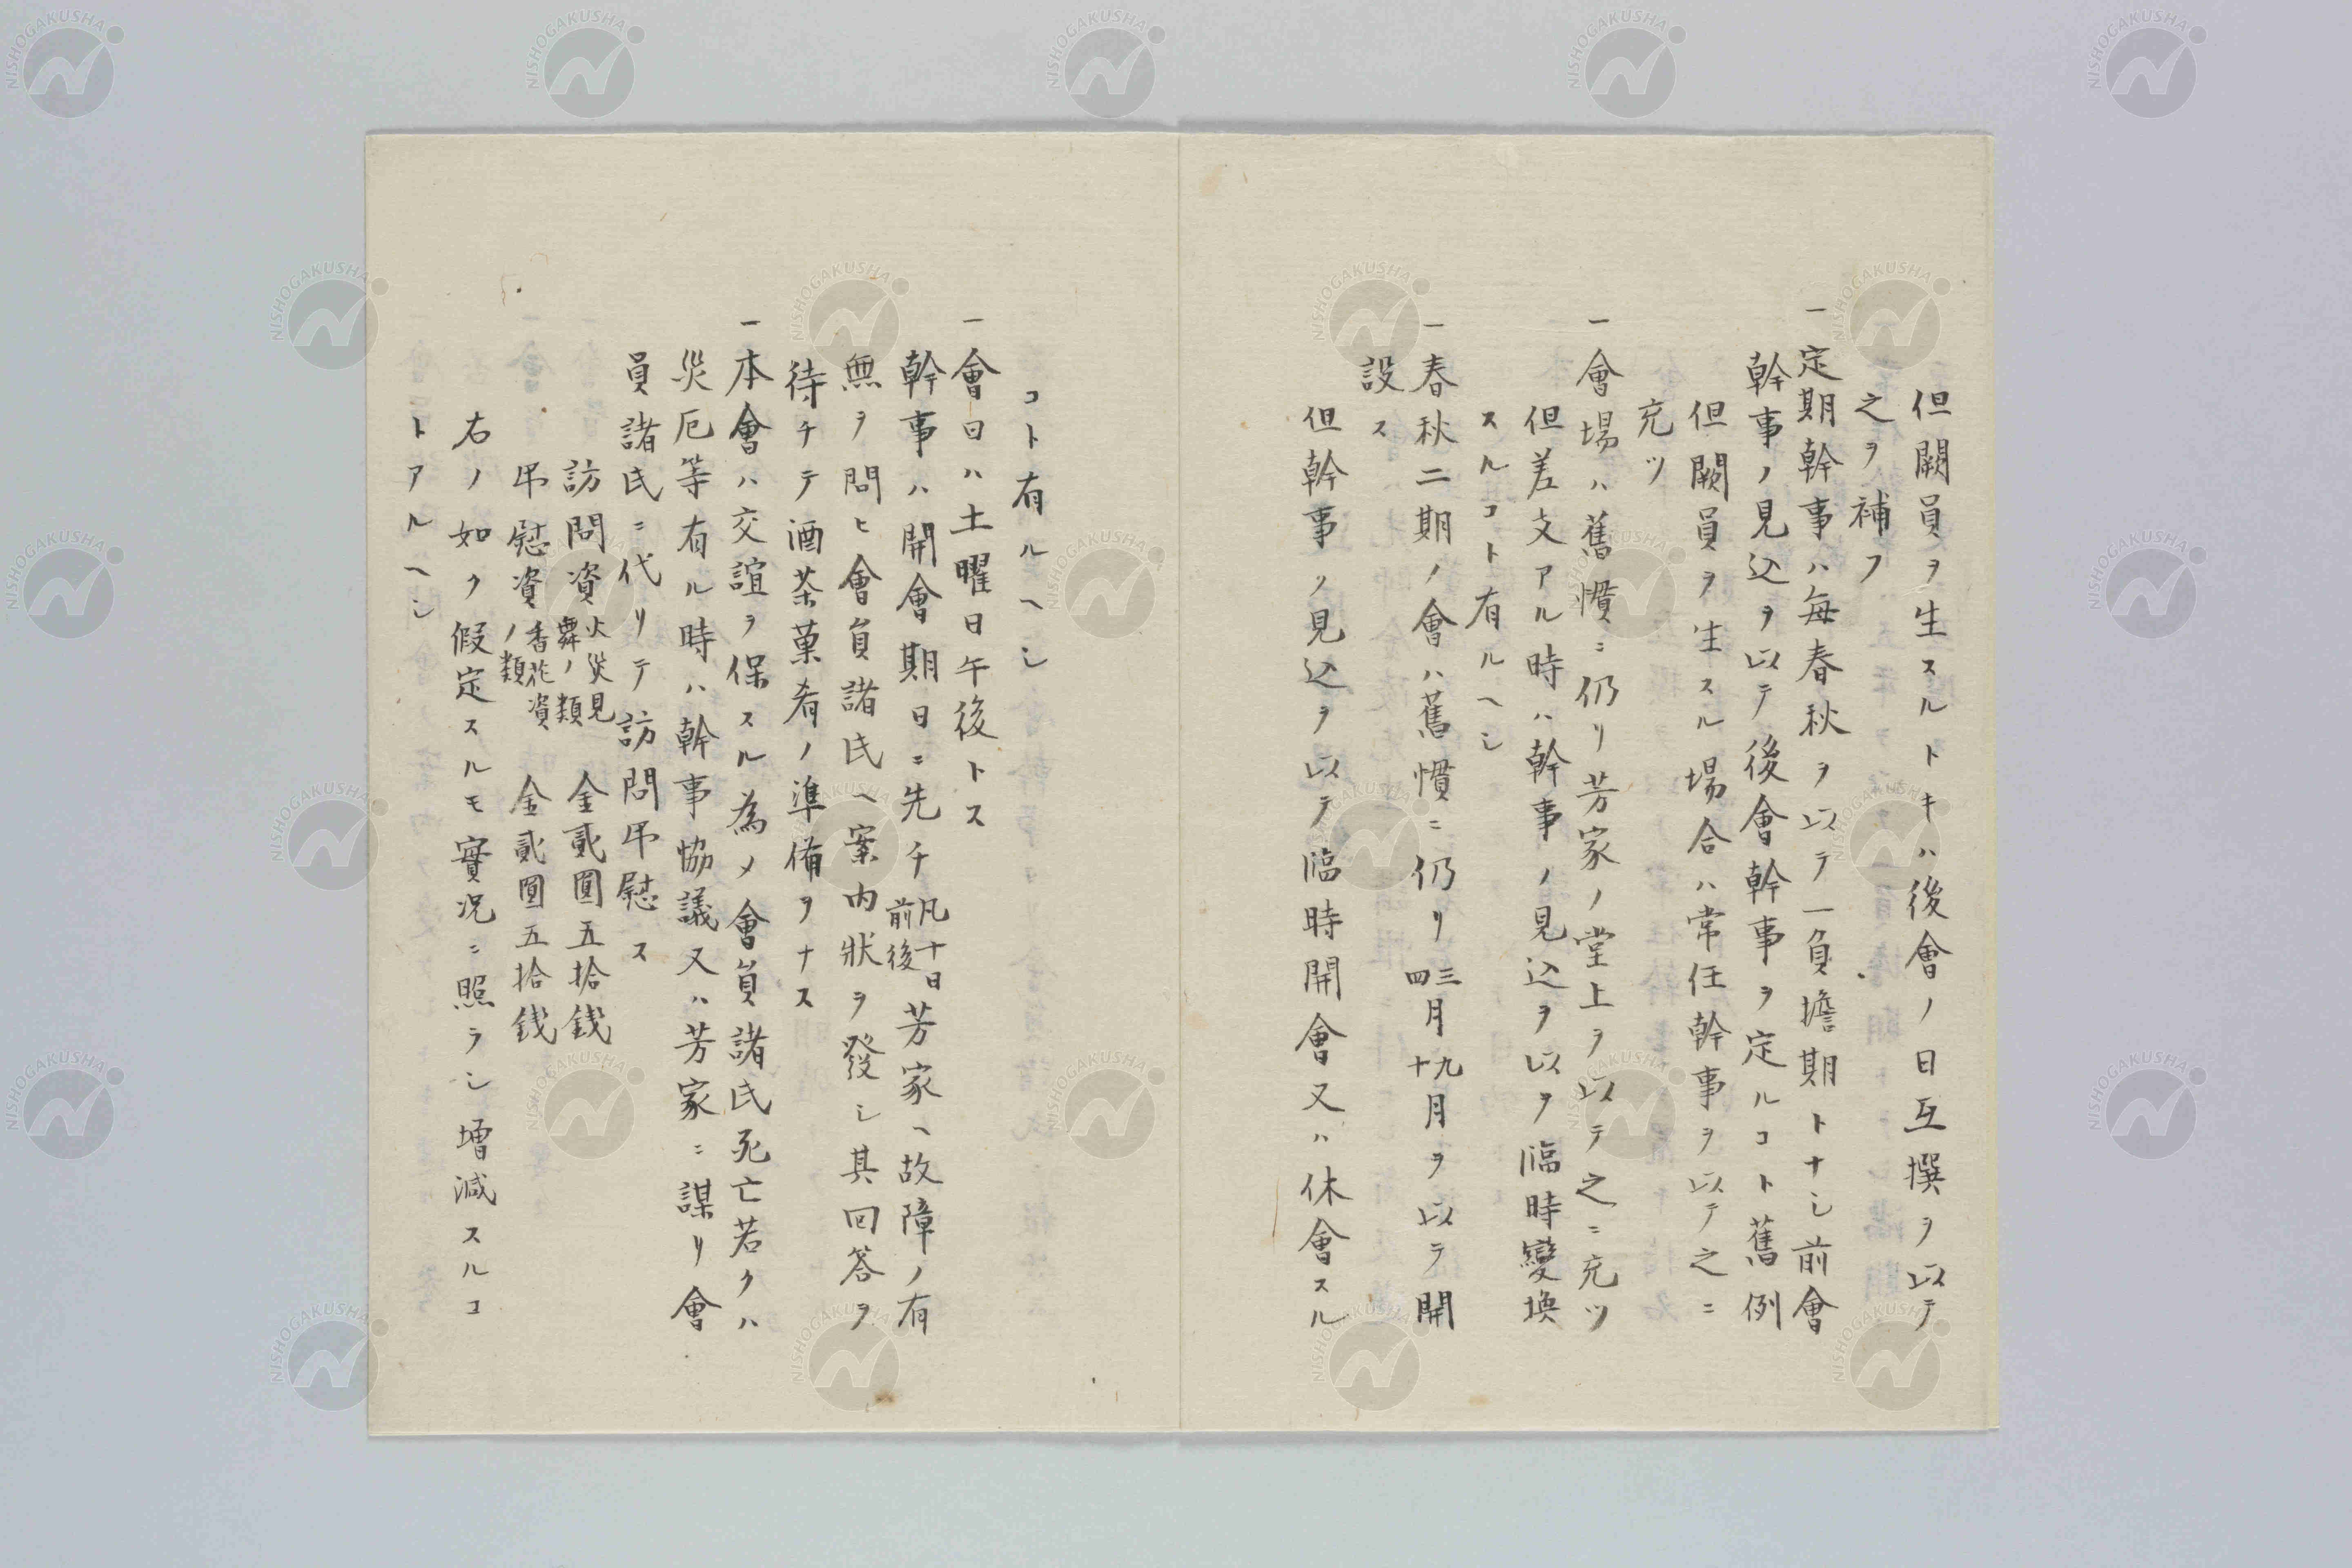 但闕員ヲ生スルトキハ後會ノ日互撰ヲ以テ
之ヲ補フ
一定期幹事ハ毎春秋ヲ以テ一負擔期トナシ前會
幹事ノ見込ヲ以テ後會幹事ヲ定ルコト舊例
但闕員ヲ生スル場合ハ常任幹事ヲ以テ之ニ
充ツ
一會場ハ舊慣ニ仍リ芳家ノ堂上ヲ以テ之ニ充ツ
但差文アル時ハ幹事ノ見込ヲ以テ臨時變換
スルコト有ルヘシ
一春秋二期ノ會ハ舊慣ニ仍リ三四月九十月ヲ以テ開
設ス
但幹事ノ見込ヲ以テ臨時開會又ハ休會スル
コト有ルヘシ
一會日ハ土曜日午後トス
幹事ハ開會期日ニ先チ凡十日前後芳家ヘ故障ノ有
無ヲ問ヒ會員諸氏ヘ案内狀ヲ發シ其回答ヲ
待チテ酒茶菓肴ノ準備ヲナス
一本會ハ交誼ヲ保スル為メ會員諸氏死亡若クハ
災厄等有ル時ハ幹事協議又ハ芳家ニ謀リ會
員諸氏ニ代リテ訪問吊慰ス
訪問資火災見舞ノ類 金貳圓五拾錢
吊慰資香花資ノ類 金貳圓五拾錢
右ノ如ク假定スルモ實況ニ照ラシ増減スルコ
トアルヘシ
NISHOGAKUSHA